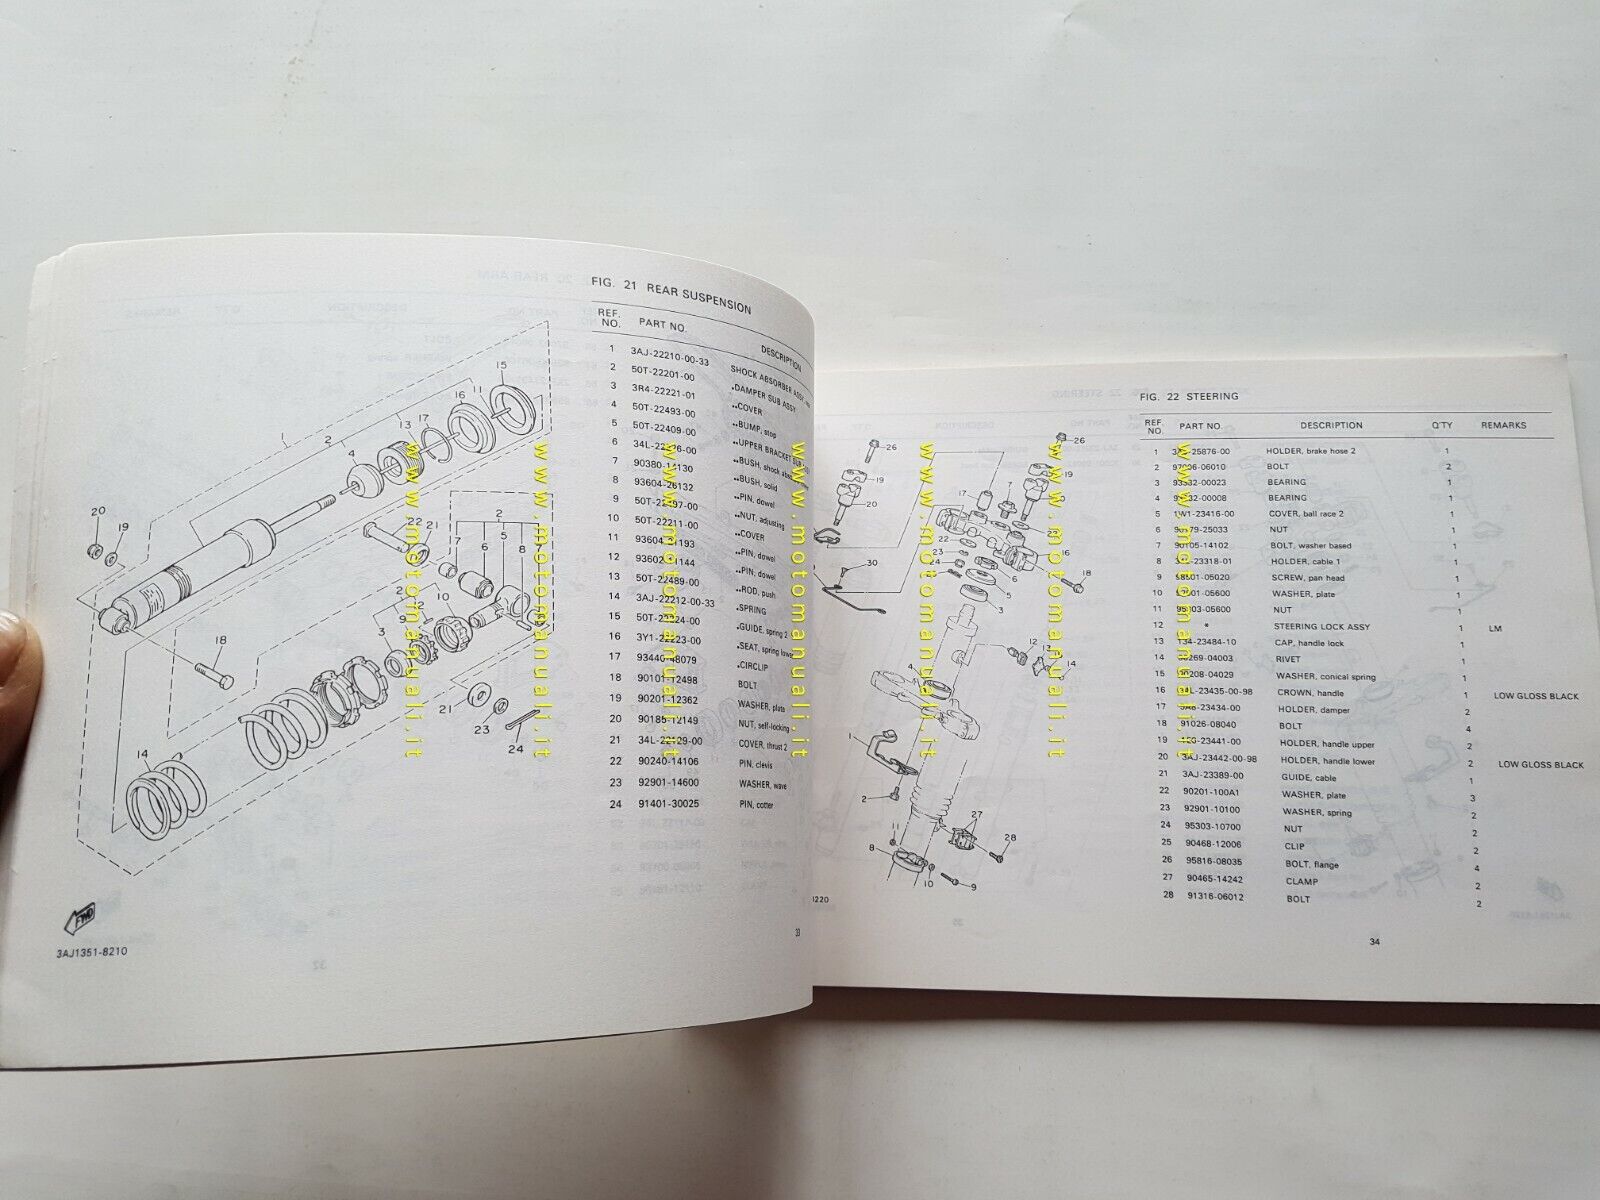 FIG. 21 REAR SUSPENSION
REF. NO. PART NO. DESCRIPTION
1 3AJ-22210-00-33 SHOCK ABSORBER ASSY
2 50T-22201-00 .DAMPER SUB ASSY
3 3R4-22221-01 ..COVER
4 50T-22493-00 ..BUMP, stop
5 50T-22409-00 ..UPPER BRACKET
6 34L- -00 ..BUSH, shock
7 90380-14130 ..BUSH, solid
8 93604-26132 ..PIN, dowel
9 50T-22497-00 ..NUT, adjusting
10 50T-22211-00 ..COVER
11 93604- 1193 ..PIN, dowel
12 93602- 1144 ..PIN, dowel
13 50T-22489-00 ..ROD, push
14 3AJ-22212-00-33 .SPRING
15 50T-22224-00 .GUIDE, spring 2
16 3Y1-22223-00 .SEAT, spring lower
17 93440-48079 .CIRCLIP
18 90101-12498 BOLT
19 90201-12362 WASHER, plate
20 90185-12149 NUT, self-locking
21 34L-22129-00 COVER, thrust 2
22 90240-14106 PIN, clevis
23 92901-14600 WASHER, wave
24 91401-30025 PIN, cotter
3AJ1351-8210
33
FIG. 22 STEERING
REF. NO. PART NO. DESCRIPTION Q'TY REMARKS
1 -25876-00 HOLDER, brake hose 2 1
2 97006-06010 BOLT 2
3 93332-00023 BEARING 1
4 93332-00008 BEARING 1
5 1W1-23416-00 COVER, ball race 2 1
6 90179-25033 NUT 1
7 90105-14102 BOLT, washer based 1
8 -23318-01 HOLDER, cable 1 1
9 98501-05020 SCREW, pan head 1
10 92901-05600 WASHER, plate 1
11 95303-05600 NUT 1
12 * STEERING LOCK ASSY 1 LM
13 134-23484-10 CAP, handle lock 1
14 90269-04003 RIVET 1
15 90208-04029 WASHER, conical spring 1
16 34L-23435-00-98 CROWN, handle 1 LOW GLOSS BLACK
17 -23434-00 HOLDER, damper 2
18 91026-08040 BOLT 4
19 -23441-00 HOLDER, handle upper 2
20 3AJ-23442-00-98 HOLDER, handle lower 2 LOW GLOSS BLACK
21 3AJ-23389-00 GUIDE, cable 1
22 90201-100A1 WASHER, plate 3
23 92901-10100 WASHER, spring 2
24 95303-10700 NUT 2
25 90468-12006 CLIP 2
26 95816-08035 BOLT, flange 4
27 90465-14242 CLAMP 2
28 91316-06012 BOLT 2
34
www.motomanuali.it
www.motomanuali.it
www.motomanuali.it
www.motomanuali.it
www.motomanuali.it
www.motomanuali.it
www.motomanuali.it